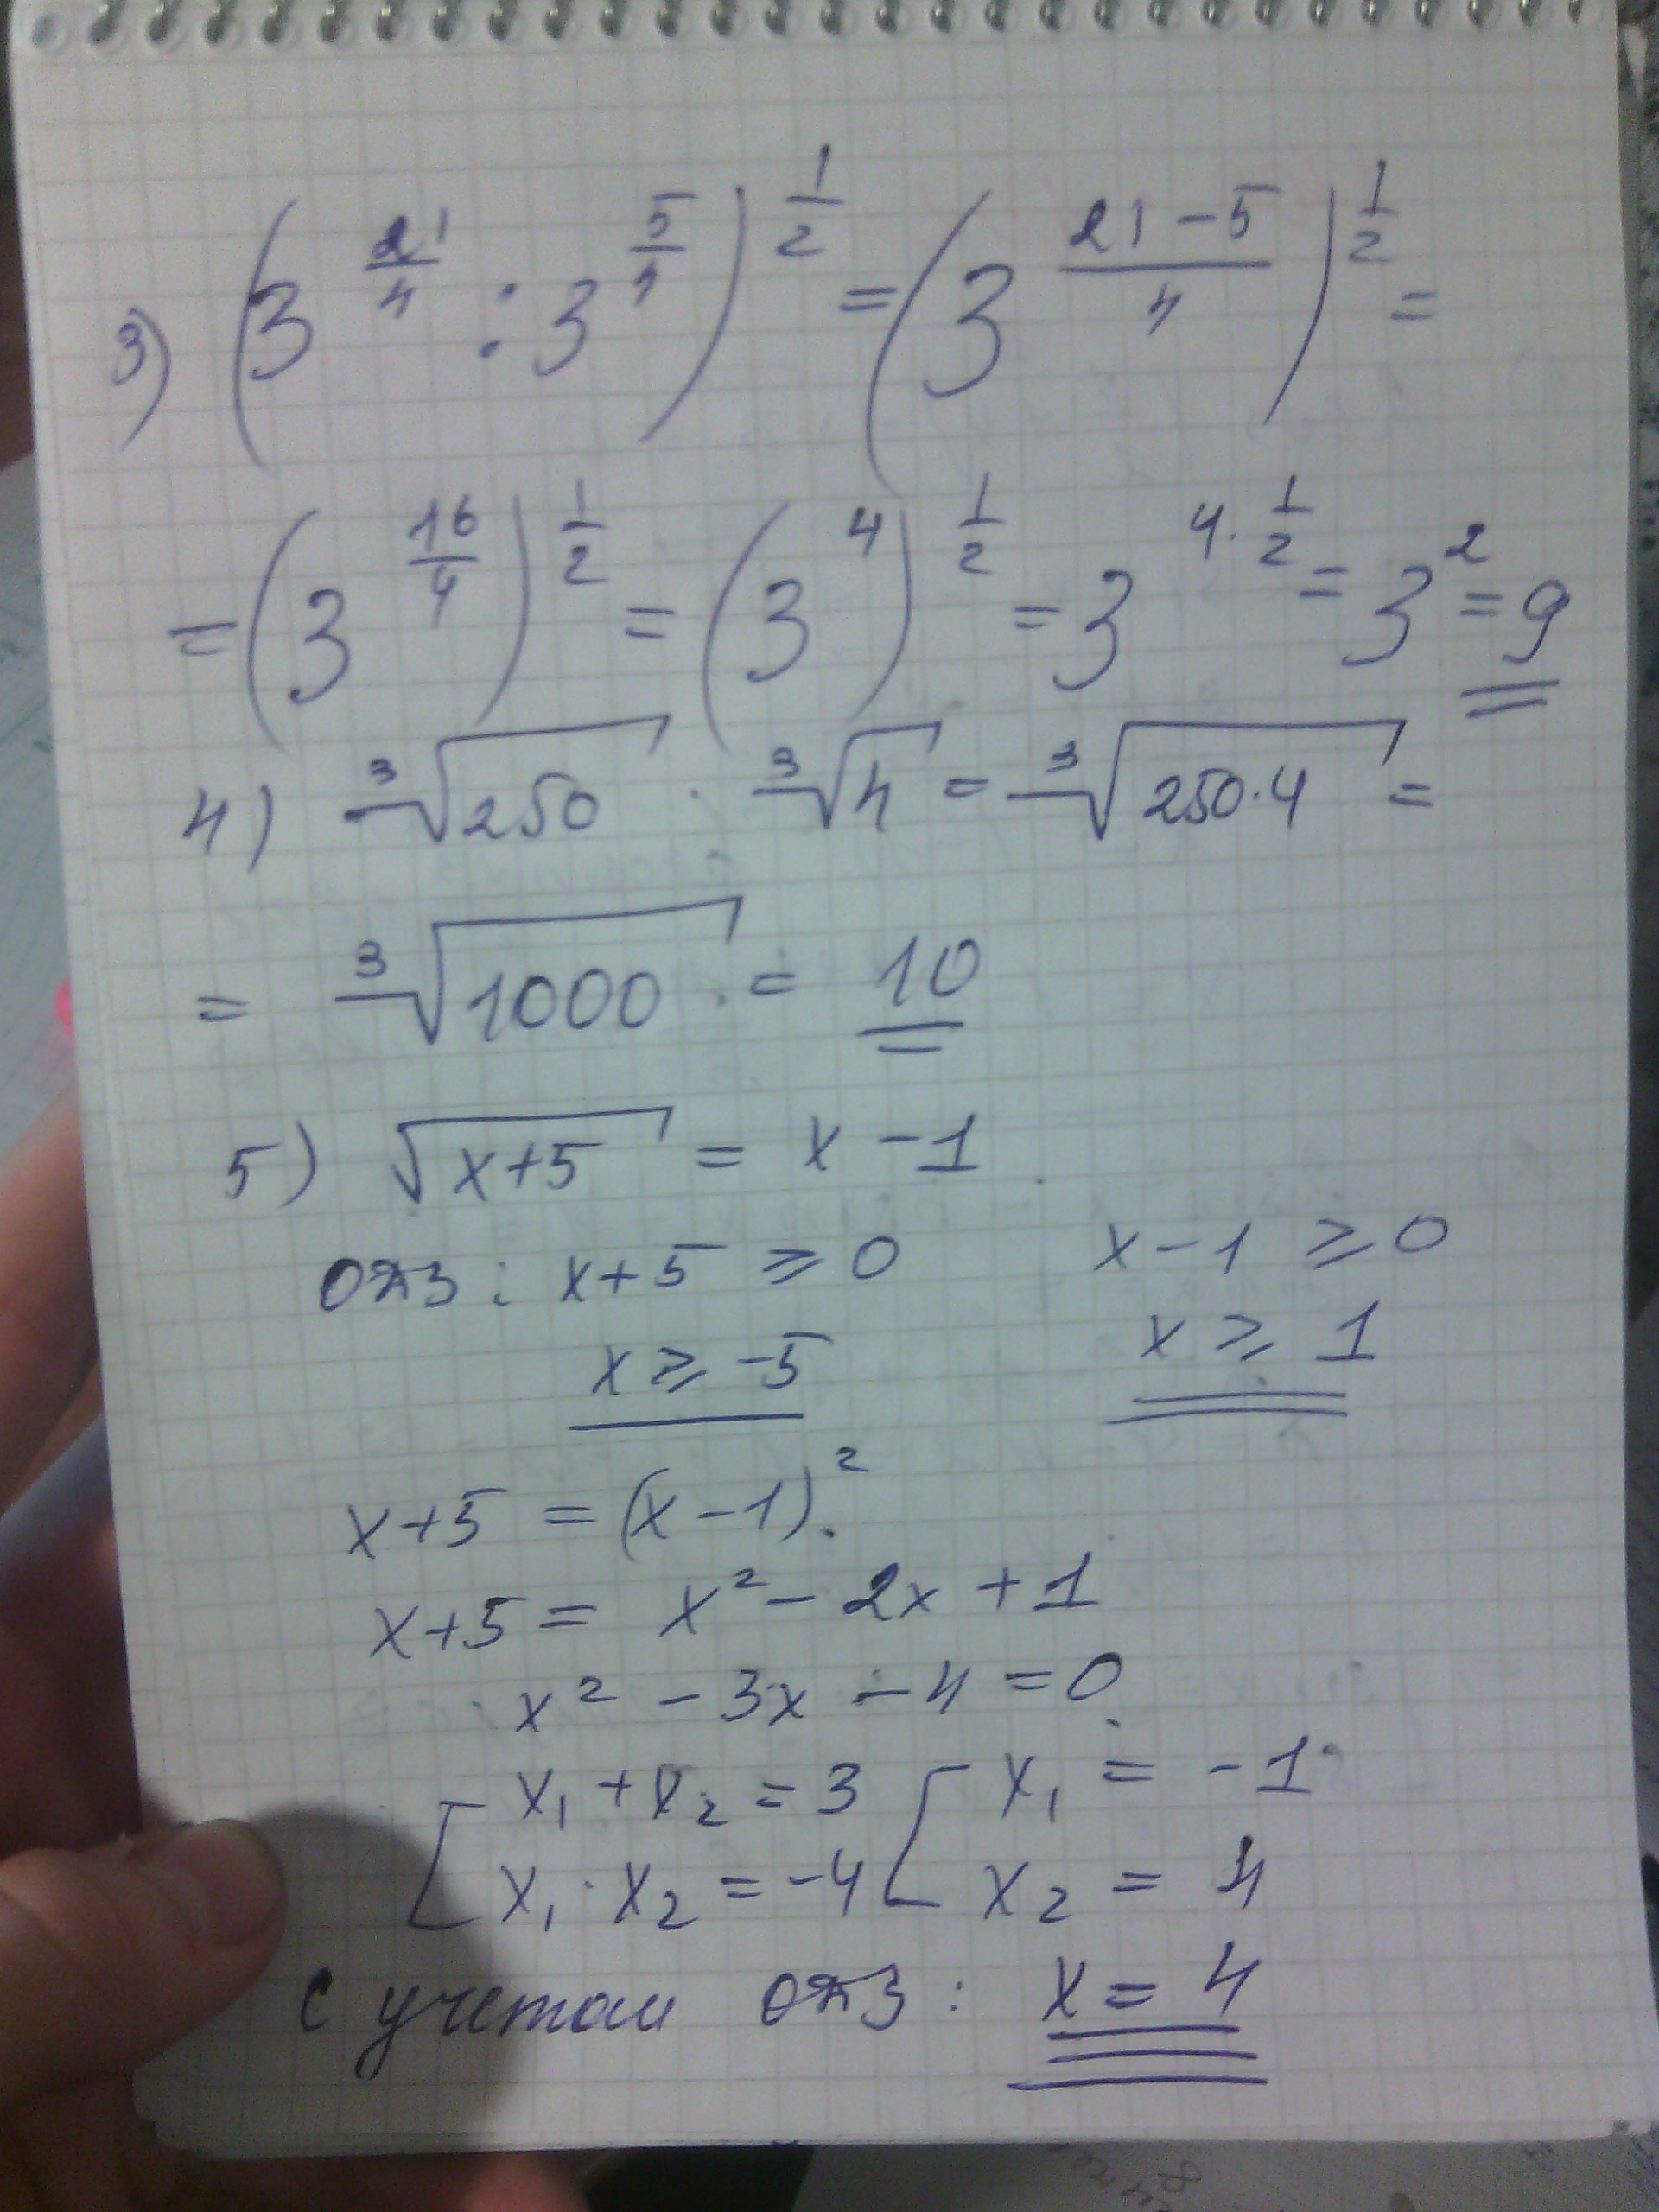 3) (3^(21/4) : 3^(5/4))^(1/2) = (3^((21-5)/4))^(1/2) =
= (3^(16/4))^(1/2) = (3^4)^(1/2) = 3^(4·1/2) = 3^2 = 9
4) ∛250 · ∛4 = ∛(250·4) =
= ∛1000 = 10
5) √(x+5) = x - 1
ОДЗ: x+5 ⩾ 0 x-1 ⩾ 0
x ⩾ -5 x ⩾ 1
x+5 = (x-1)².
x+5 = x² - 2x + 1
x² - 3x - 4 = 0
[ x₁ + x₂ = 3 [ x₁ = -1
x₁ · x₂ = -4 x₂ = 4
С учетом ОДЗ: x = 4